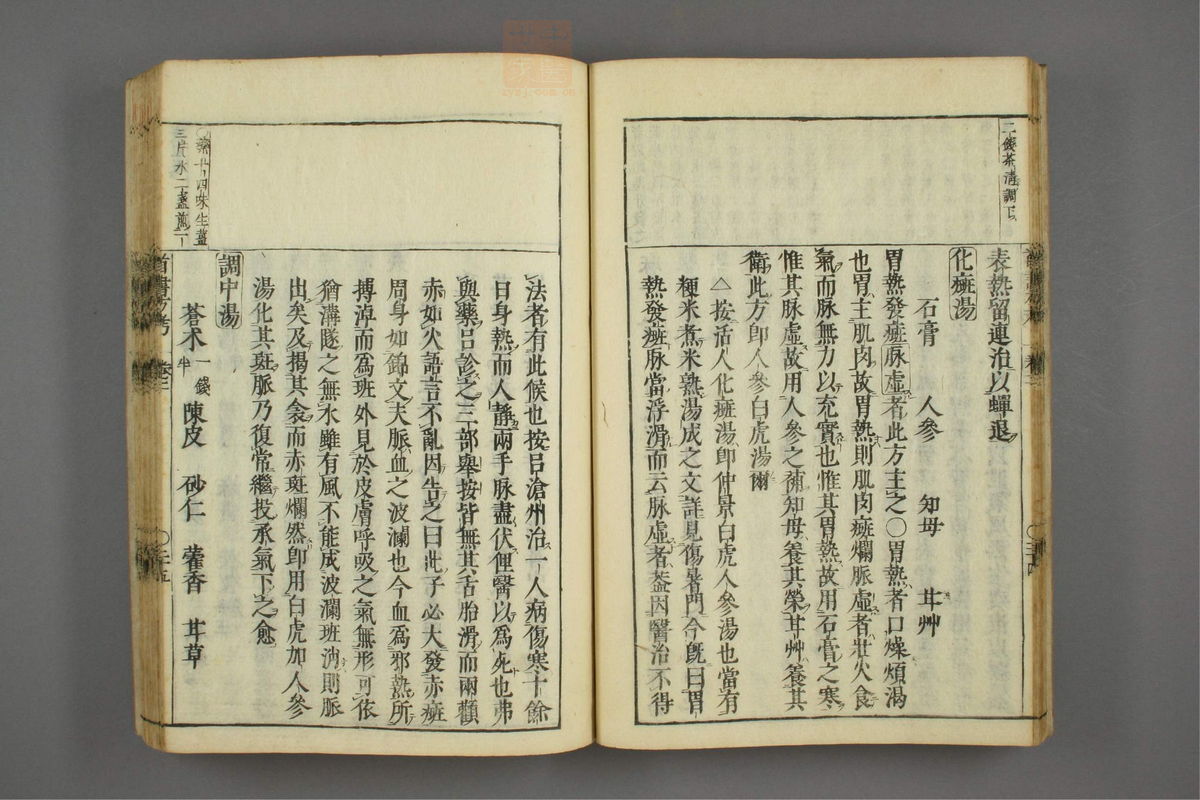 二錢茶清調下
表熱留連治以蟬退
化癍湯
石膏 人參 知母 甘艸
胃熱發癍脉虛者此方主之〇胃熱者口燥煩渴
也胃主肌肉故胃熱則肌肉癍爛脈虛者壯火食
氣而脉無力以充實也惟其胃熱故用石膏之寒
惟其脉虛故用人參之補知母養其榮甘艸養其
衛此方卽人參白虎湯爾
△按活人化癍湯卽仲景白虎人參湯也當有
粳米煮米熟湯成之文詳見傷暑門今旣曰胃
熱發癍脉當浮滑而云脉虛者葢因醫治不得
法者有此候也按呂滄州治一人病傷寒十餘
日身熱而人靜兩手脉盡伏俚醫以爲死也弗
與藥呂診之三部舉按皆無其舌胎滑而兩顴
赤如火語言不亂因告之曰此子必大發赤癍
周身如錦文夫脈血之波瀾也今血爲邪熱所
搏淖而爲班外見於皮膚呼吸之氣無形可依
猶溝隧之無水雖有風不能成波瀾班消則脈
出矣及揭其衾而赤斑爛然卽用白虎加人參
湯化其斑脈乃復常繼投承氣下之愈
〇藥十四味生薑
三片水二盞煎一
調中湯
蒼朮一錢半 陳皮 砂仁 藿香 甘草
卷三
〇三十五
zysj.com.cn